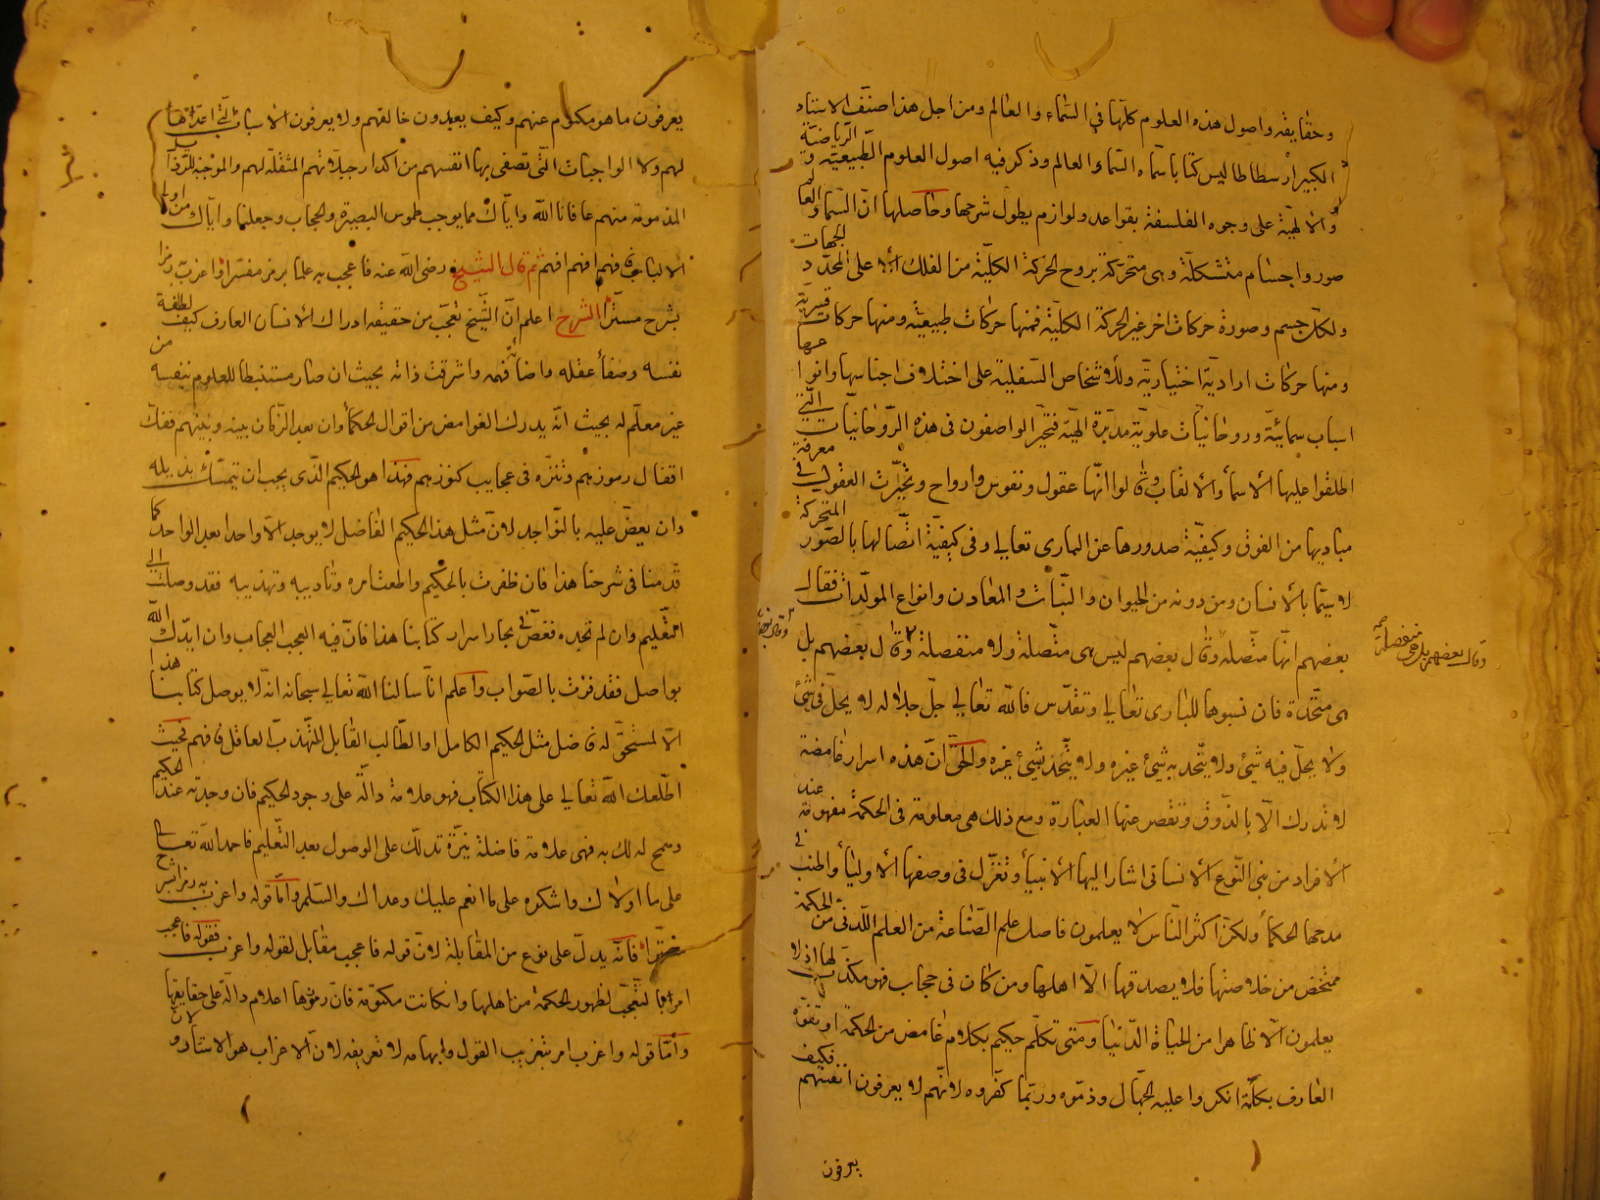 وحقايقه واصول هذه العلوم كلها في السماء والعالم ومن اجل هذا صنف الاستاد
الكبير ارسطاطاليس كتابا سماه السماء والعالم وذكر فيه اصول العلوم الطبيعية والرياضية
والالهية على وجوه الفلسفة بقواعد ولوازم يطول شرحها وحاصلها ان السماء والعالم
صور واجسام متشكلة وهي متحركة بروح الحركة الكلية من الفلك الاعلى المحدد الجهات
ولكل جسم وصورة حركات اخر غير الحركة الكلية فمنها حركات طبيعية ومنها حركات قسرية
ومنها حركات ارادية اختيارية وللاشخاص السفلية على اختلاف اجناسها وانواعها
اسباب سمائية وروحانيات علوية مدبرة الهية فتحير الواصفون في هذه الروحانيات التي
اطلقوا عليها الاسماء والالقاب وقالوا انها عقول ونفوس وارواح وتحيرت العقول في معرفة
مباديها من الفوق وكيفية صدورها عن الباري تعالى وفي كيفية اتصالها بالصور المتحركة
لا سيما بالانسان ومن دونه من الحيوان والنبات والمعادن وانواع المولدات فقال
بعضهم انها متصلة وقال بعضهم ليس هي متصلة ولا منفصلة وقال بعضهم بل
وقال بعضهم بل هي منفصلة
هي متحدة فان نسبوها للباري تعالى وتقدس فالله تعالى جل جلاله لا يحل في شئ
ولا يحل فيه شئ ولا يتحد به شئ غيره ولا يتحد بشئ غيره والحق ان هذه اسرار غامضة
لا تدرك الا بالذوق وتقصر عنها العبارة ومع ذلك هي معلومة في الحكمة مفهومة عند
الافراد من بني النوع الانساني اشار اليها الانبياء وتغزل في وصفها الاولياء واطنب في
مدحها الحكماء ولكن اكثر الناس لا يعلمون فاصل علم الصناعة من العلم اللدني من الحكمة
متمخض من خلاصتها فلا يصدقها الا اهلها ومن كان في حجاب فهو مكذب لها اذ لا
يعلمون الا ظاهرا من الحياة الدنيا ومتى تكلم حكيم بكلام غامض من الحكمة او تفوه
العارف بكلمة انكروا عليه الجهال وذموه وربما كفروه لانهم لا يعرفون انفسهم فكيف
يعرفون
يعرفون ما هو مكتوم عنهم وكيف يعبدون خالقهم ولا يعرفون الاسباب التي اعدها
لهم ولا الواجبات التي تصفى بها انفسهم من اكدار جبلاتهم المثقلة لهم والموجبة للرذايل
المذمومة منهم عافانا الله واياك مما يوجب طموس البصيرة والحجاب وجعلنا واياك من اولي
الالباب فافهم افهم افهم ثم قال الشيخ رضي الله عنه فاعجب به علما برمز مفسرا واغرب رمزا
بشرح مسترا الشرح اعلم ان الشيخ تعجب من حقيقة ادراك الانسان العارف كيف لطفة
نفسه وصفا عقله واضاء فهمه واشرقت ذاته بحيث ان صار مستنبطا للعلوم بنفسه من
غير معلم له بحيث انه يدرك الغوامض من اقوال الحكماء وان بعد الزمان بينه وبينهم ففك
اقفال رموزهم وتنزه في عجايب كنوزهم فهذا هو الحكيم الذي يجب ان يتمسك بذيله
وان يعض عليه بالنواجد لان مثل هذا الحكيم الفاضل لا يوجد الا واحدا بعد الواحد كما
قدمنا في شرحنا هذا فان ظفرت بالحكيم واطعت امره وتاديبه وتهذيبه فقد وصلت الى
التعليم وان لم تجده فغص في بحار اسرار كتابنا هذا فان فيه العجب العجاب وان ايدك الله
بواصل فقد فزت بالصواب واعلم انا سالنا الله تعالى سبحانه انه لا يوصل كتابنا هذا
الا لمستحق له فاضل مثل الحكيم الكامل او الطالب القابل المهذب العاقل فافهم فحيث
اطلعك الله تعالى على هذا الكتاب فهو علامة دالة على وجود الحكيم فان وجدته عند الحكيم
وسمح له لك به فهي علامة فاضلة نيرة تدلك على الوصول بعد التعليم فاحمد الله تعالى
على ما اولاك واشكره على ما انعم عليك وهداك والسلم واما قوله واغرب به رمزا بشرح
مسترا فانه يدل على نوع من المقابلة لان قوله فاعجب مقابل لقوله واغرب فقوله فاعجب
امر بالتعجب لظهور الحكمة من اهلها وان كانت مكتومة فان رموزها اعلام دالة على حقايقها
واما قوله واغرب امر بتغريب القول وابهامه لا تعريفه لان الاغراب هو الاستار